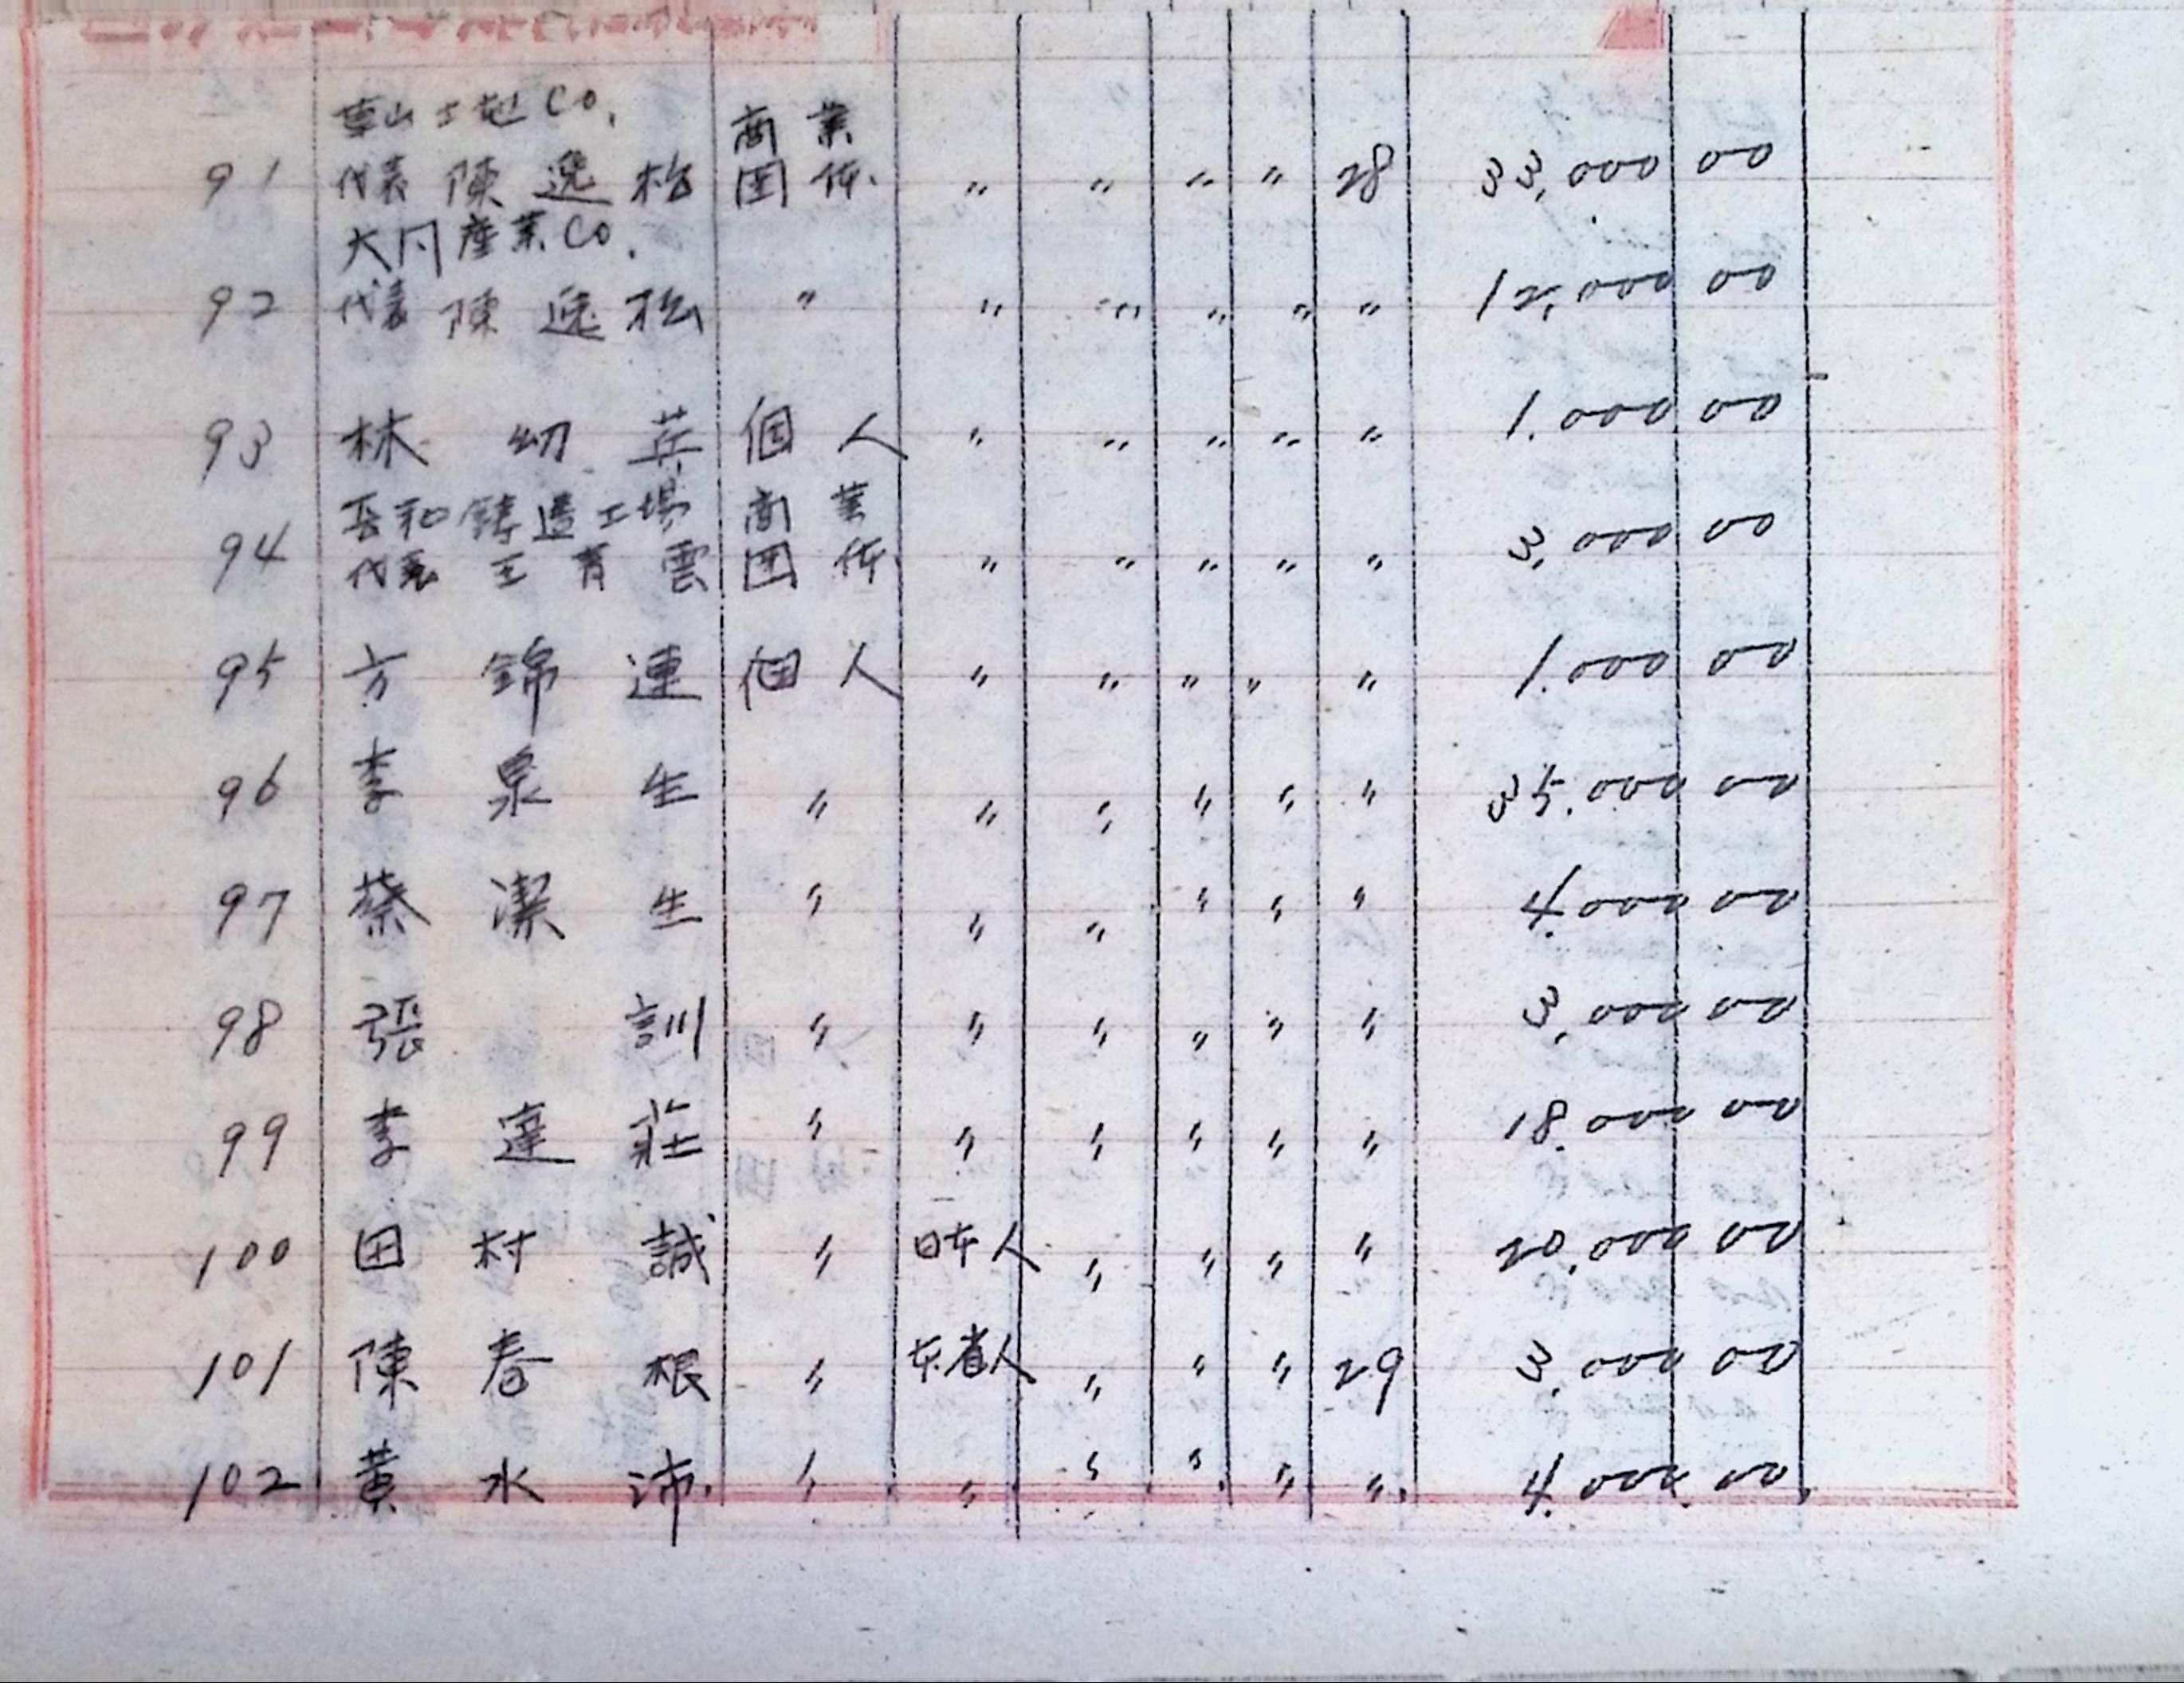 草山土地Co.
商業
91 代表 陳逸松 団体 〃 〃 〃 〃 28 33,000 00
大円産業Co.
92 代表 陳逸松 〃 〃 〃 〃 〃 〃 12,000 00
93 林幼英 個人 〃 〃 〃 〃 〃 1.000 00
和鋳造工場 商業
94 代表 王青雲 団体 〃 〃 〃 〃 〃 3,000 00
95 方錦連 個人 〃 〃 〃 〃 〃 1.000 00
96 李泉生 〃 〃 〃 〃 〃 〃 35.000 00
97 蔡潔生 〃 〃 〃 〃 〃 〃 4.000 00
98 張訓 〃 〃 〃 〃 〃 〃 3,000 00
99 李達莊 〃 〃 〃 〃 〃 〃 18.000 00
100 田村誠 〃 日本人 〃 〃 〃 〃 20.000 00
101 陳春根 〃 本省人 〃 〃 〃 29 3.000 00
102 黄水沛 〃 〃 〃 〃 〃 〃 4.000 00